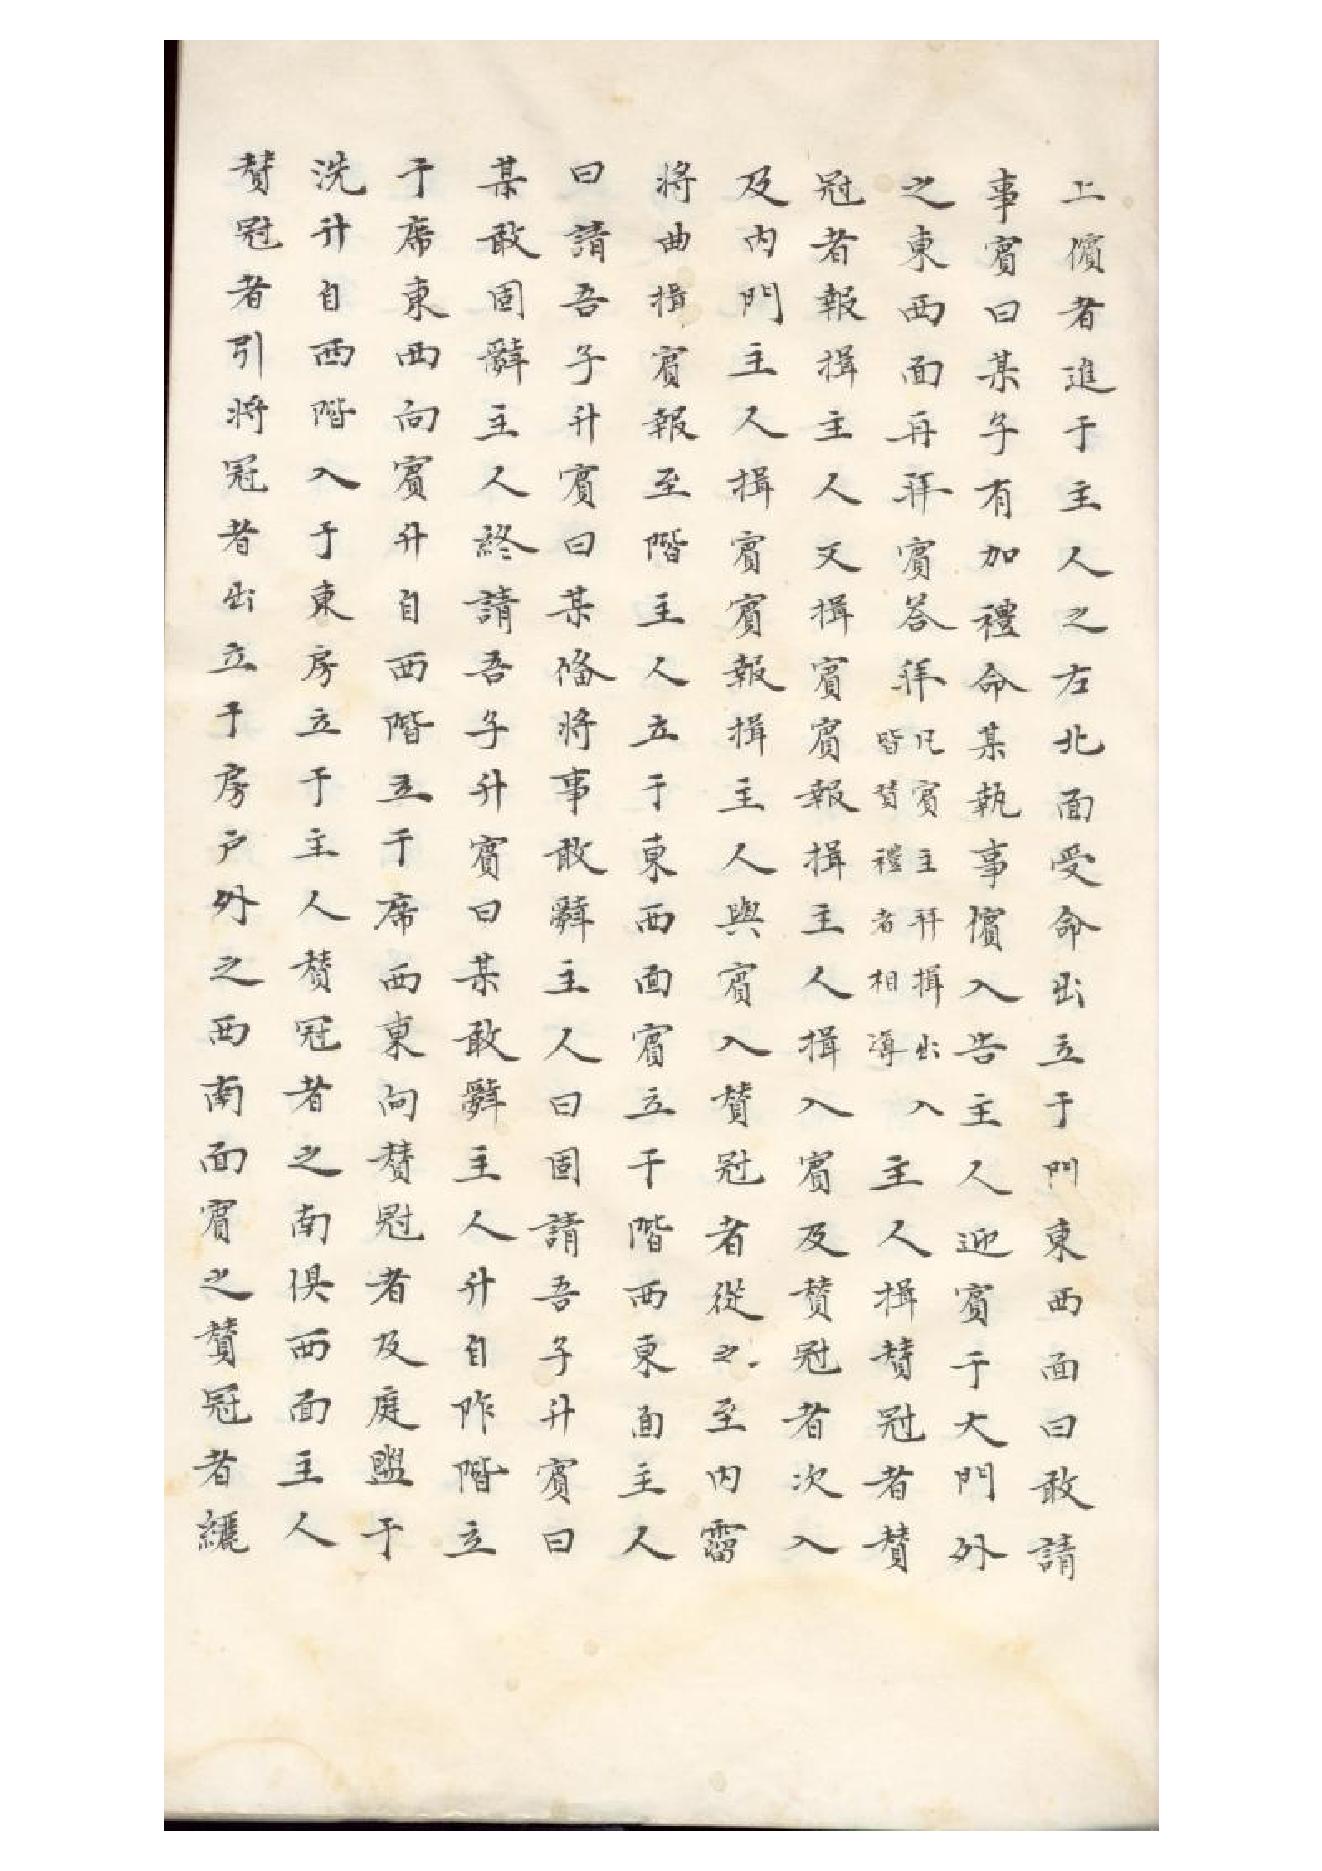 上儐者進于主人之左北面受命出立于門東西面曰敢請
事賓曰某子有加禮命某執事儐入告主人迎賓于大門外
之東西面再拜賓答拜凡賓主拜揖出入皆贊禮者相導主人揖贊冠者贊
冠者報揖主人又揖賓賓報揖主人揖入賓及贊冠者次入
及內門主人揖賓賓報揖主人與賓入贊冠者從之至內霤
將曲揖賓報至階主人立于東西面賓立于階西東面主人
曰請吾子升賓曰某備將事敢辭主人曰固請吾子升賓曰
某敢固辭主人終請吾子升賓曰某敢辭主人升自阼階立
于席東西向賓升自西階立于席西東向贊冠者及庭盥于
洗升自西階入于東房立于主人贊冠者之南俱西面主人
贊冠者引將冠者出立于房戶外之西南面賓之贊冠者纚